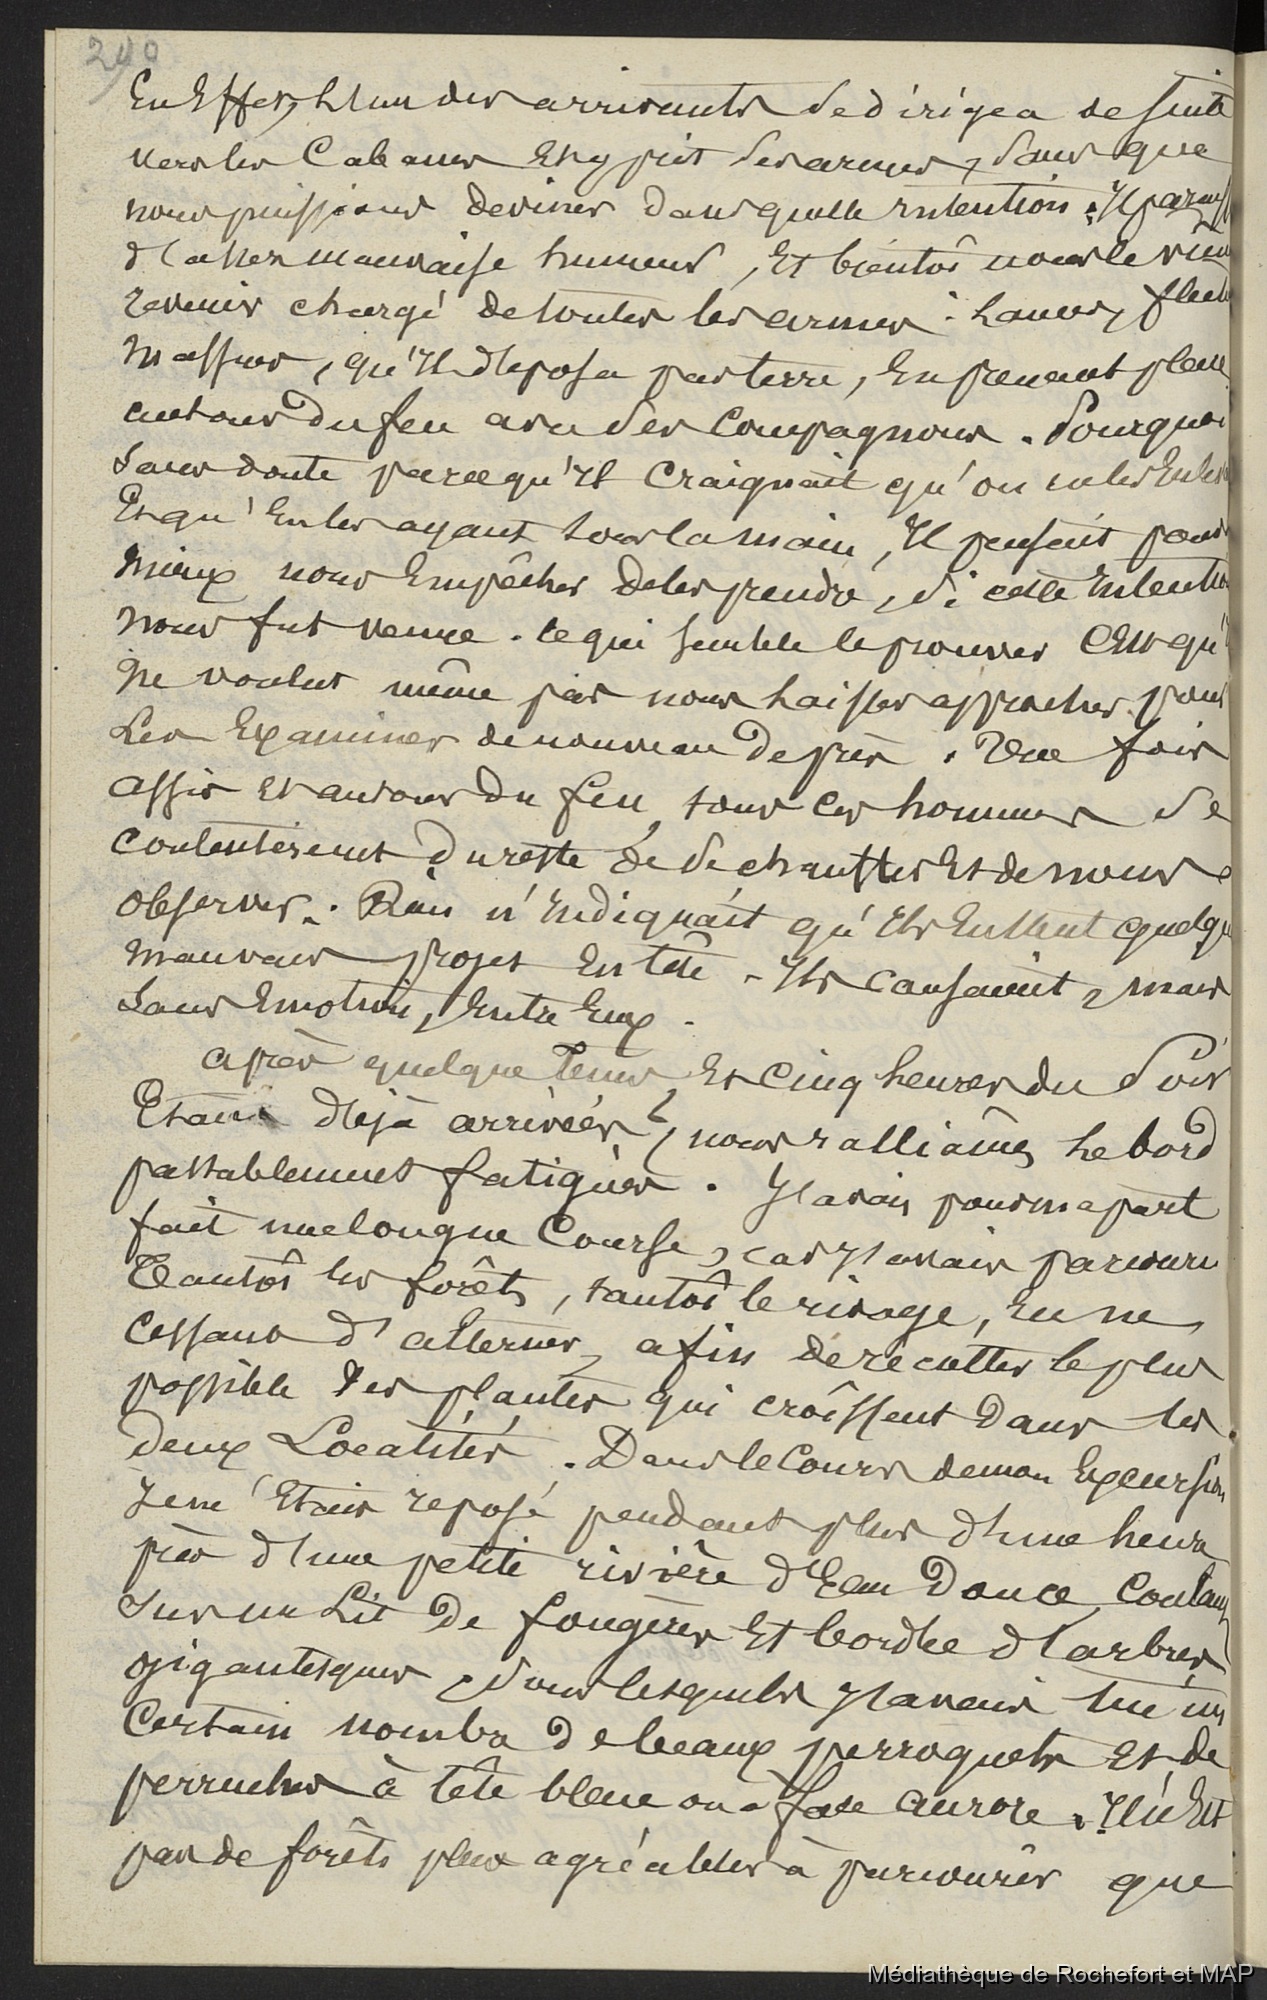 240
En Effet, L'un des arrivants se dirigea de suite
vers les Cabanes Et y prit des armes, sans que
nous puissions deviner dans quelle intention. Il parais
d'assez mauvaise humeur, Et bientôt nous le vim
revenir chargé de toutes les armes : lances, flech
massues, qu'Il déposa par terre, En prenant place
autour Du feu avec ses Compagnons. Pourquoi
sans doute parcequ'Il Craignait qu'on ne les Enlev
Et qu'En les ayant sous la main, Il pensait pouv
mieux nous Empêcher de les prendre, si cette Intentio
nous fut venue. Ce qui semble le prouver C'Est qu'
Ne voulut même pas nous Laisser approcher pour
Les Examiner de nouveau De près. Une fois
assis Et autour du feu, tous ces hommes se
contentèrent du reste de se chauffer Et de nous
observer. Rien n'Indiquait qu'Ils Eussent quelqu
mauvais projet En tête. Ils causaient, mais
sans Emotion, Entre Eux.
après quelque Tems Et Cinq heures du soir
Etant déjà arrivées, nous ralliâmes Le bord
passablement fatigués. J'avais pour ma part
fait une longue Course, car J'avais parcouru
Tantôt les forêts, tantôt le rivage, En ne
Cessant d'alterner, afin de récolter le plus
possible des plantes qui croîssent Dans les
deux Localités. Dans le Cours de mon Excursion
Je m'Etais reposé pendant plus d'une heure
près d'une petite rivière d'Eau Douce, Coulant
sur un Lit De fougères Et bordée d'arbres
gigantesques, sous lesquels J'avais tué un
Certain nombre de beaux perroquets Et de
perruches à tête bleue ou à face aurore. Il n'Est
pas de forêts plus agréables à parcourir que
Médiathèque de Rochefort et MAP